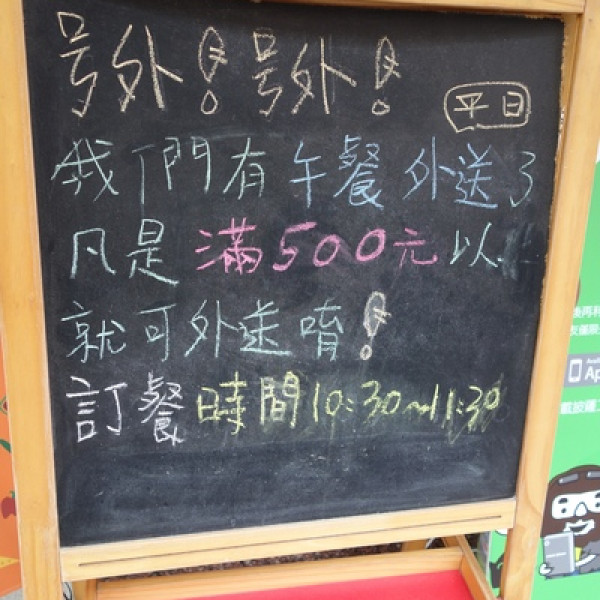 号外!号外!
平日
我們有午餐外送了
凡是滿500元以
就可外送唷!
訂餐時間10:30~11:30
後再利
App